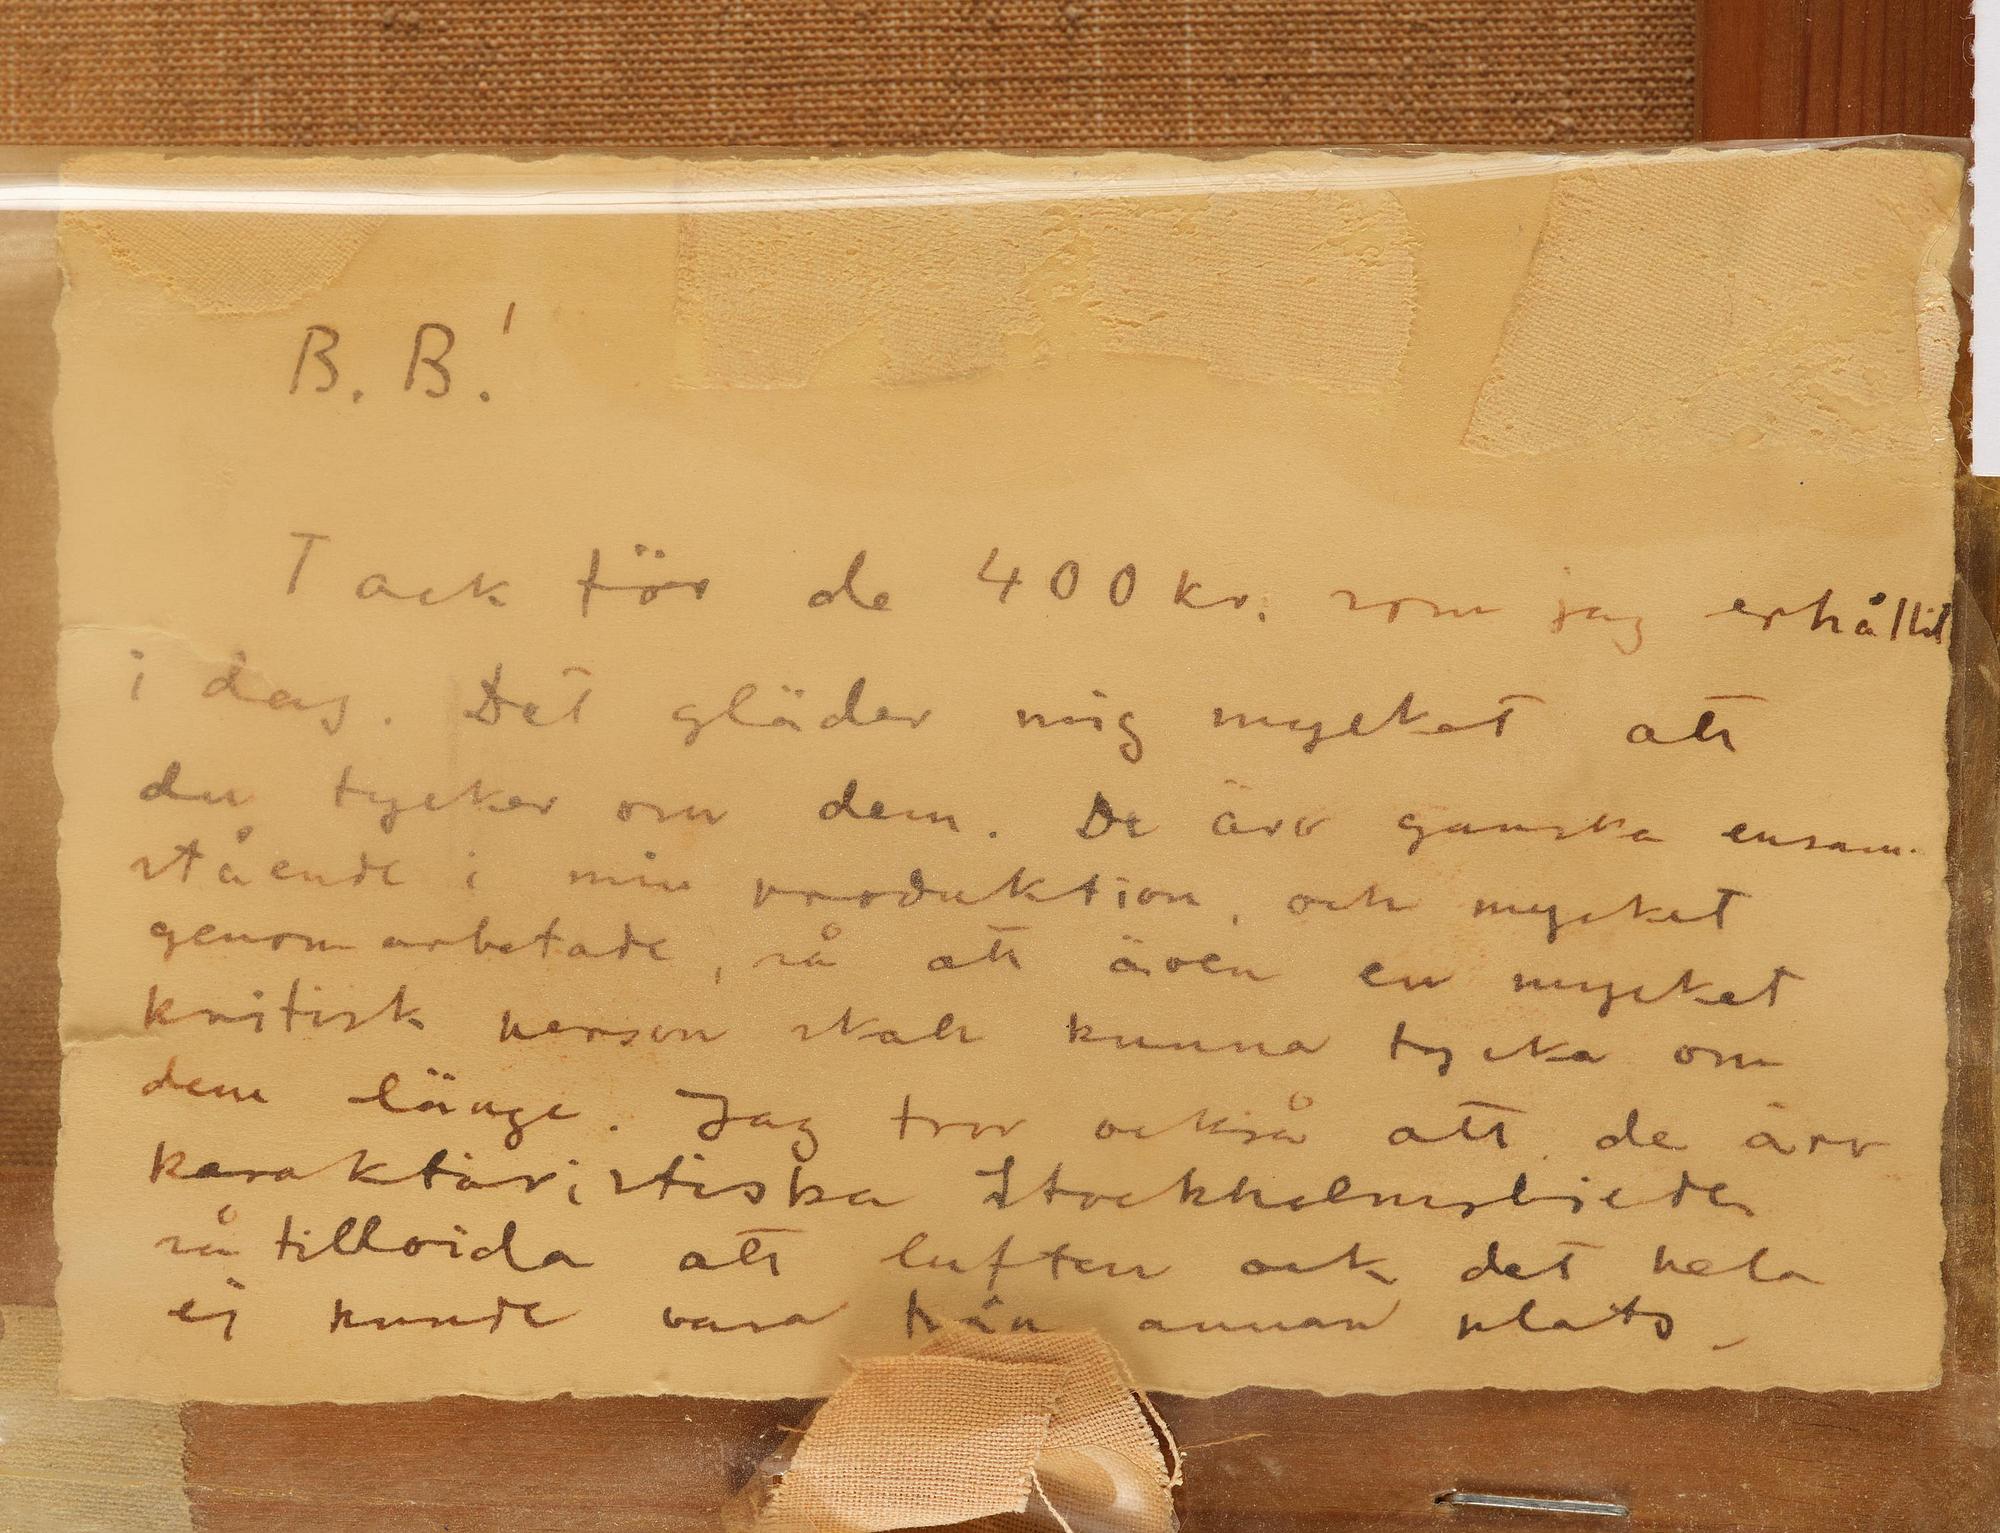 B. B.!
Tack för de 400 kr. som jag erhållit
i dag. Det gläder mig mycket att
du tycker om dem. De äro ganska ensam-
stående i min produktion, och mycket
genomarbetade, så att även en mycket
kritisk person skall kunna tycka om
dem länge. Jag tror också att de äro
karaktäristiska Stockholmsbilder
så tillvida att luften och det hela
ej kunde vara från annan plats.